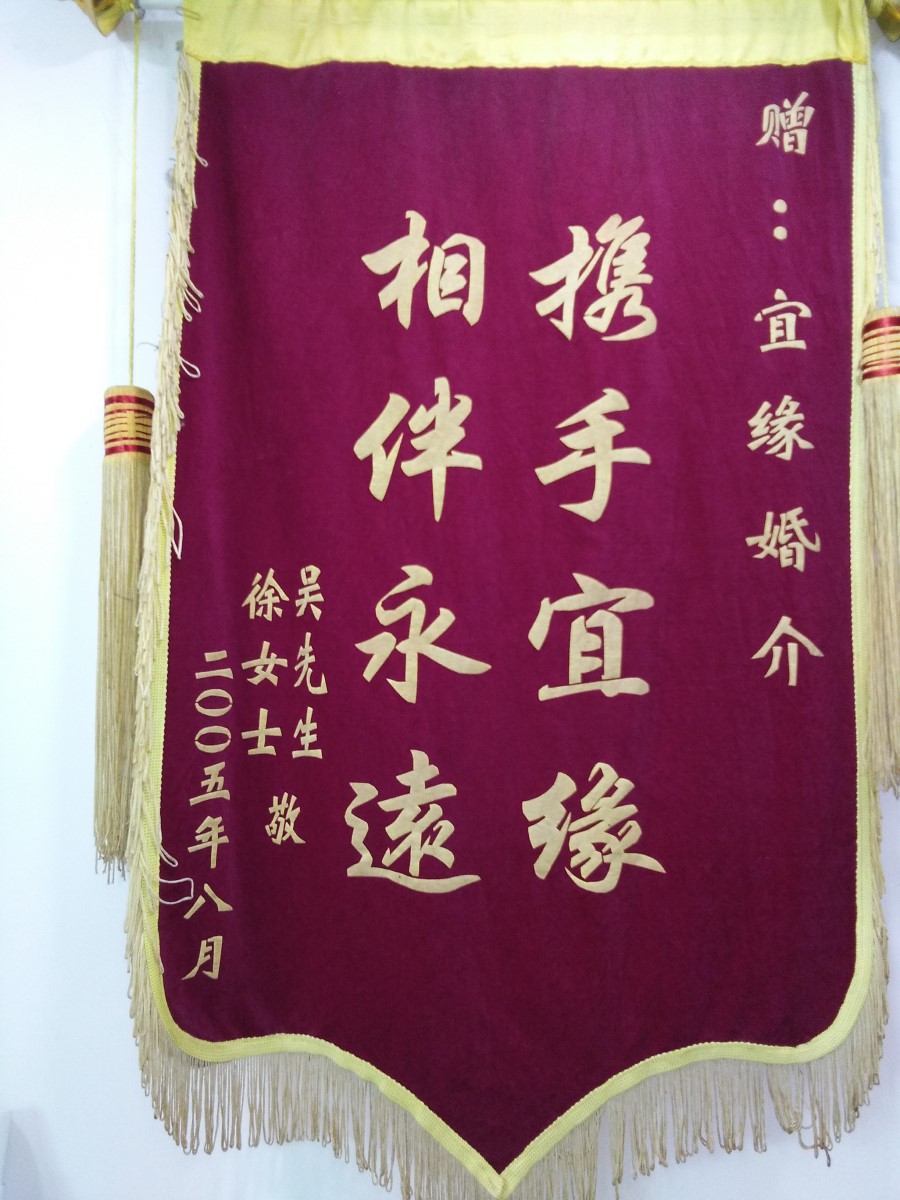 赠：宜缘婚介
携手宜缘
相伴永遠
吴先生
徐女士
敬
二〇〇五年八月